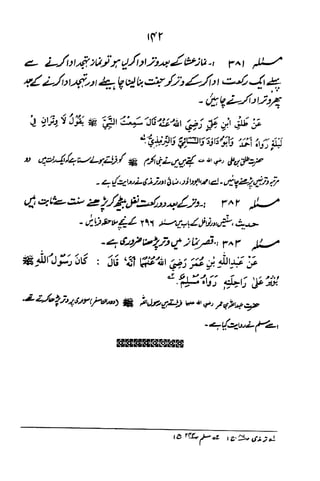 ۱۴۲
مسئلہ ۳۸۱ :۔ نماز عشاء کے بعد وتر ادا کر لیا ہو تو نماز تہجد ادا کرنے سے
پہلے ایک رکعت ادا کر کے وتر کو جفت بنا لینا چاہیئے اور تہجد ادا کرنے کے بعد
پھر وتر ادا کرنے چاہئیں ۔
عَنْ طَلْقِ ابْنِ عَلِيٍّ رَضِيَ اللهُ عَنْهُ قَالَ سَمِعْتُ النَّبِيَّ ﷺ يَقُولُ لَا وِتْرَانِ فِي
لَيْلَةٍ رَوَاهُ أَحْمَدُ وَأَبُوْدَاوُدَ وَالنَّسَائِيُّ وَالتِّرْمِذِيُّ
حضرت طلق بن علی رضی اللہ عنہ کہتے ہیں میں نے نبی اکرم ﷺ کو فرماتے ہوئے سنا ہے کہ ایک رات میں دو
مرتبہ وتر نہیں پڑھنے چاہئیں ۔ اسے احمد، ابو داؤد، نسائی اور ترمذی نے روایت کیا ہے ۔
مسئلہ ۳۸۲ :۔ وتر کے بعد دو رکعت نفل بیٹھ کر پڑھنے سنت سے ثابت ہیں
حدیث، سنتیں اور نوافل کے باب میں مسئلہ ۲۹۶ کے نیچے ملاحظہ فرمائیں ۔
مسئلہ ۳۸۳ :۔ قصر نماز میں وتر پڑھنا ضروری ہے ۔
عَنْ عَبْدِ اللهِ بْنِ عُمَرَ رَضِيَ اللهُ عَنْهُمَا أَنَّهُ قَالَ : كَانَ رَسُوْلُ اللهِ ﷺ
يُوْتِرُ عَلىٰ رَاحِلَتِهِ رَوَاهُ مُسْلِمٌ
حضرت عبداللہ بن عمر رضی اللہ عنہما فرماتے ہیں رسول اللہ ﷺ (دوران سفر) سواری پر وتر پڑھا کرتے تھے ۔
اسے مسلم نے روایت کیا ہے ۔